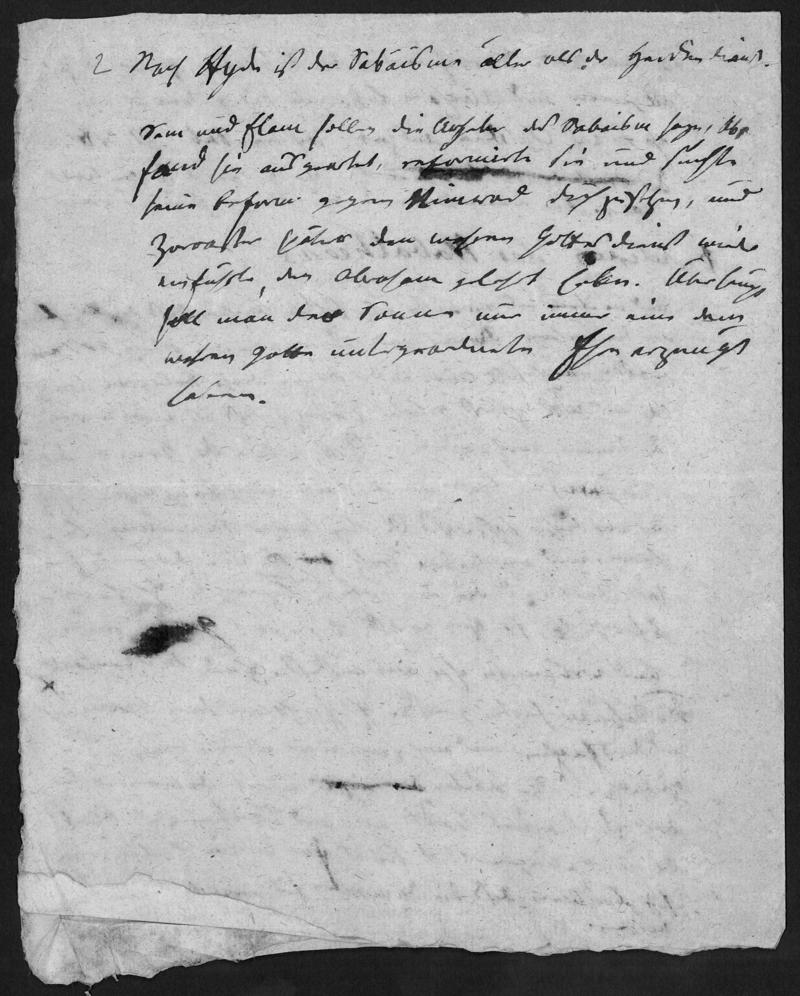 2 Nach Hyde ist der Sabäismus älter als der Heuerdienst.
Sem und Elam sollen die Urheber des Sabäism seyn, Abr.
fand sie ausgeartet, reformirte sie und suchte
seine Reform gegen Nimrod durchzusetzen, und
Zoroaster später den wahren Gottesdienst wieder
einführte, den Abraham gelehrt habe. Überhaupt
soll man der Sonne nur immer eine dem
wahren Gotte untergeordnete Ehre erzeugt
haben.